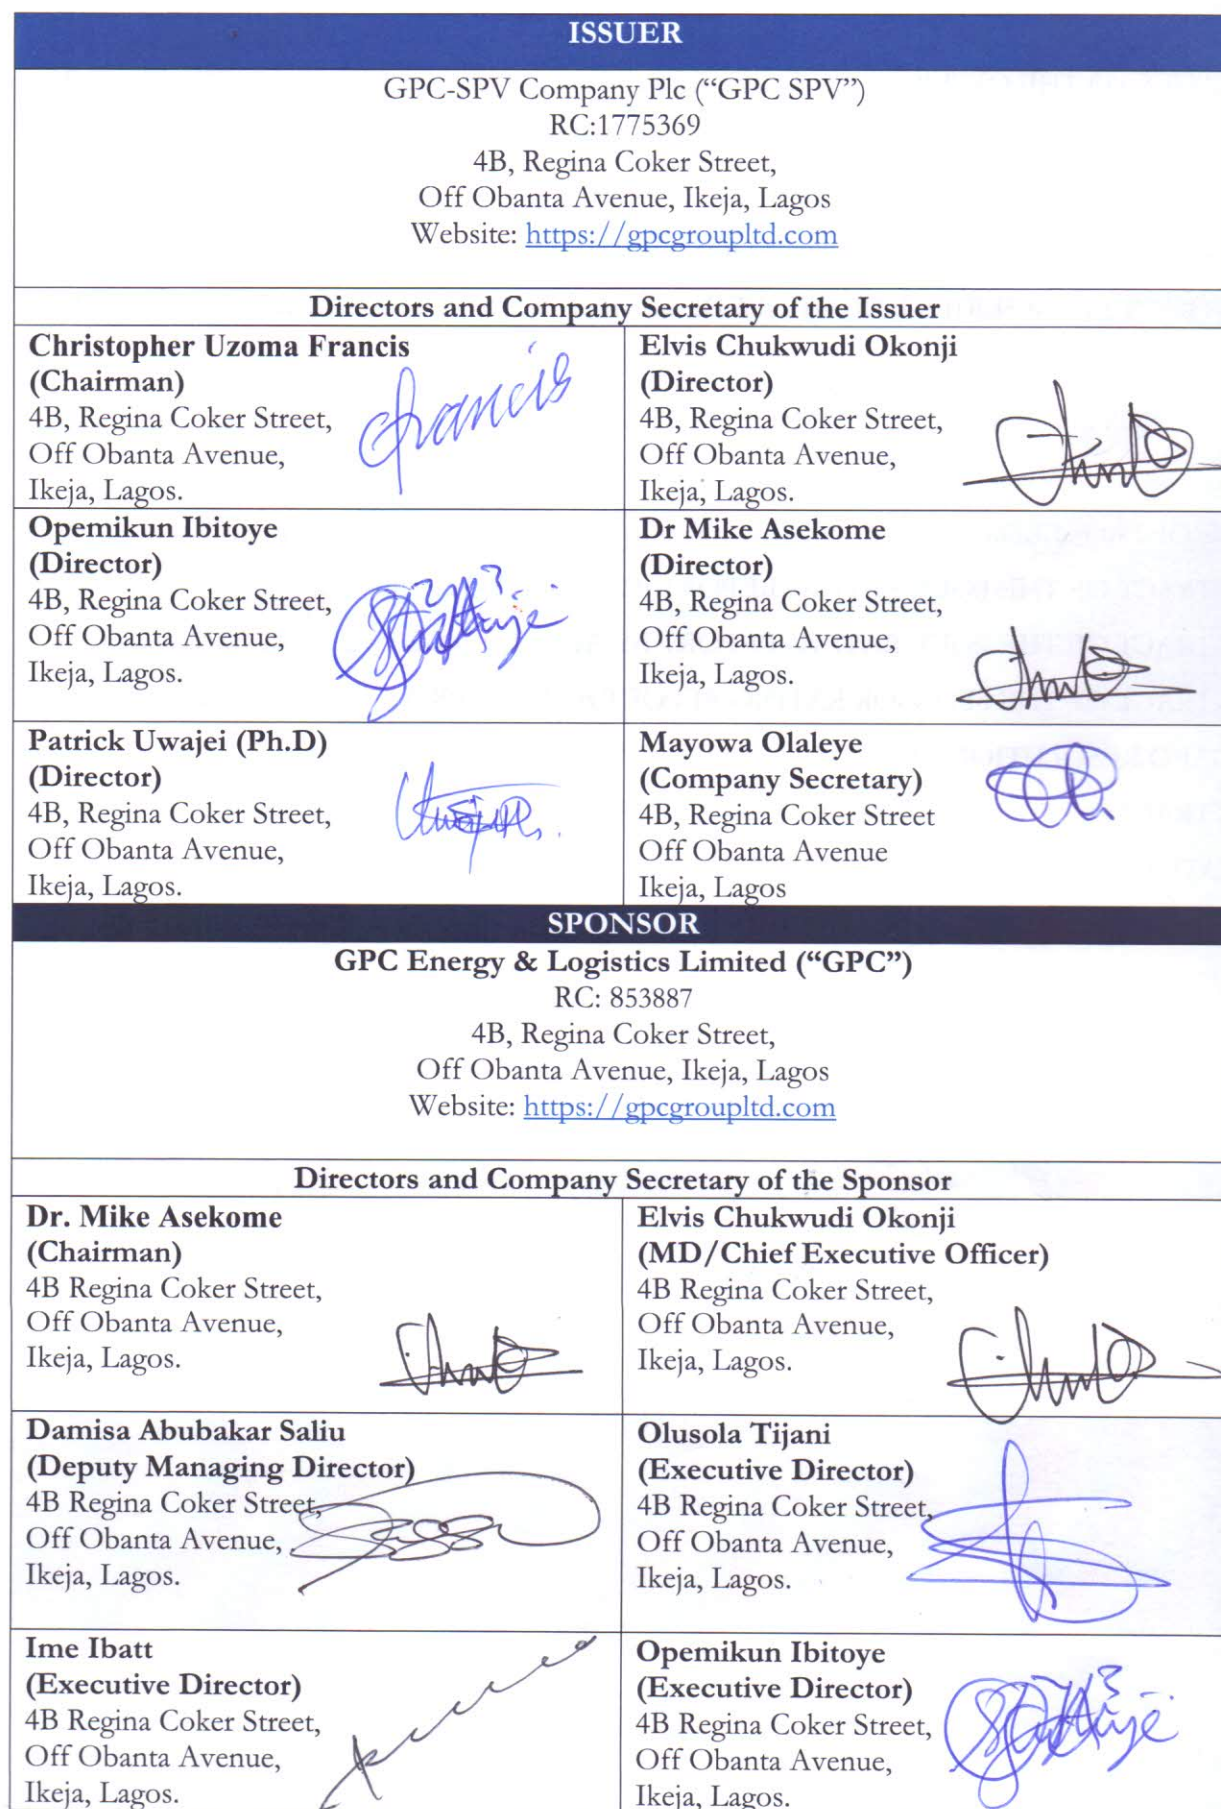 ISSUER
GPC-SPV Company Plc (“GPC SPV”)
RC:1775369
4B, Regina Coker Street,
Off Obanta Avenue, Ikeja, Lagos
Website: https://gpcgroupltd.com
Directors and Company Secretary of the Issuer
Christopher Uzoma Francis
(Chairman)
4B, Regina Coker Street,
Off Obanta Avenue,
Ikeja, Lagos.
Francis
Elvis Chukwudi Okonji
(Director)
4B, Regina Coker Street,
Off Obanta Avenue,
Ikeja, Lagos.
Opemikun Ibitoye
(Director)
4B, Regina Coker Street,
Off Obanta Avenue,
Ikeja, Lagos.
Dr Mike Asekome
(Director)
4B, Regina Coker Street,
Off Obanta Avenue,
Ikeja, Lagos.
Patrick Uwajei (Ph.D)
(Director)
4B, Regina Coker Street,
Off Obanta Avenue,
Ikeja, Lagos.
Mayowa Olaleye
(Company Secretary)
4B, Regina Coker Street
Off Obanta Avenue
Ikeja, Lagos
SPONSOR
GPC Energy & Logistics Limited (“GPC”)
RC: 853887
4B, Regina Coker Street,
Off Obanta Avenue, Ikeja, Lagos
Website: https://gpcgroupltd.com
Directors and Company Secretary of the Sponsor
Dr. Mike Asekome
(Chairman)
4B Regina Coker Street,
Off Obanta Avenue,
Ikeja, Lagos.
Elvis Chukwudi Okonji
(MD/Chief Executive Officer)
4B Regina Coker Street,
Off Obanta Avenue,
Ikeja, Lagos.
Damisa Abubakar Saliu
(Deputy Managing Director)
4B Regina Coker Street,
Off Obanta Avenue,
Ikeja, Lagos.
Olusola Tijani
(Executive Director)
4B Regina Coker Street,
Off Obanta Avenue,
Ikeja, Lagos.
Ime Ibatt
(Executive Director)
4B Regina Coker Street,
Off Obanta Avenue,
Ikeja, Lagos.
Opemikun Ibitoye
(Executive Director)
4B Regina Coker Street,
Off Obanta Avenue,
Ikeja, Lagos.